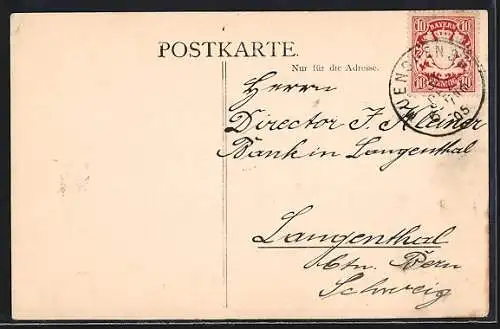 POSTKARTE.
Nur für die Adresse.
10 BAYERN 10
MUENCHEN
05
Herrn
Director J. Meiner
Bank in Langenthal
Langenthal
Ctn. Bern
Schweiz